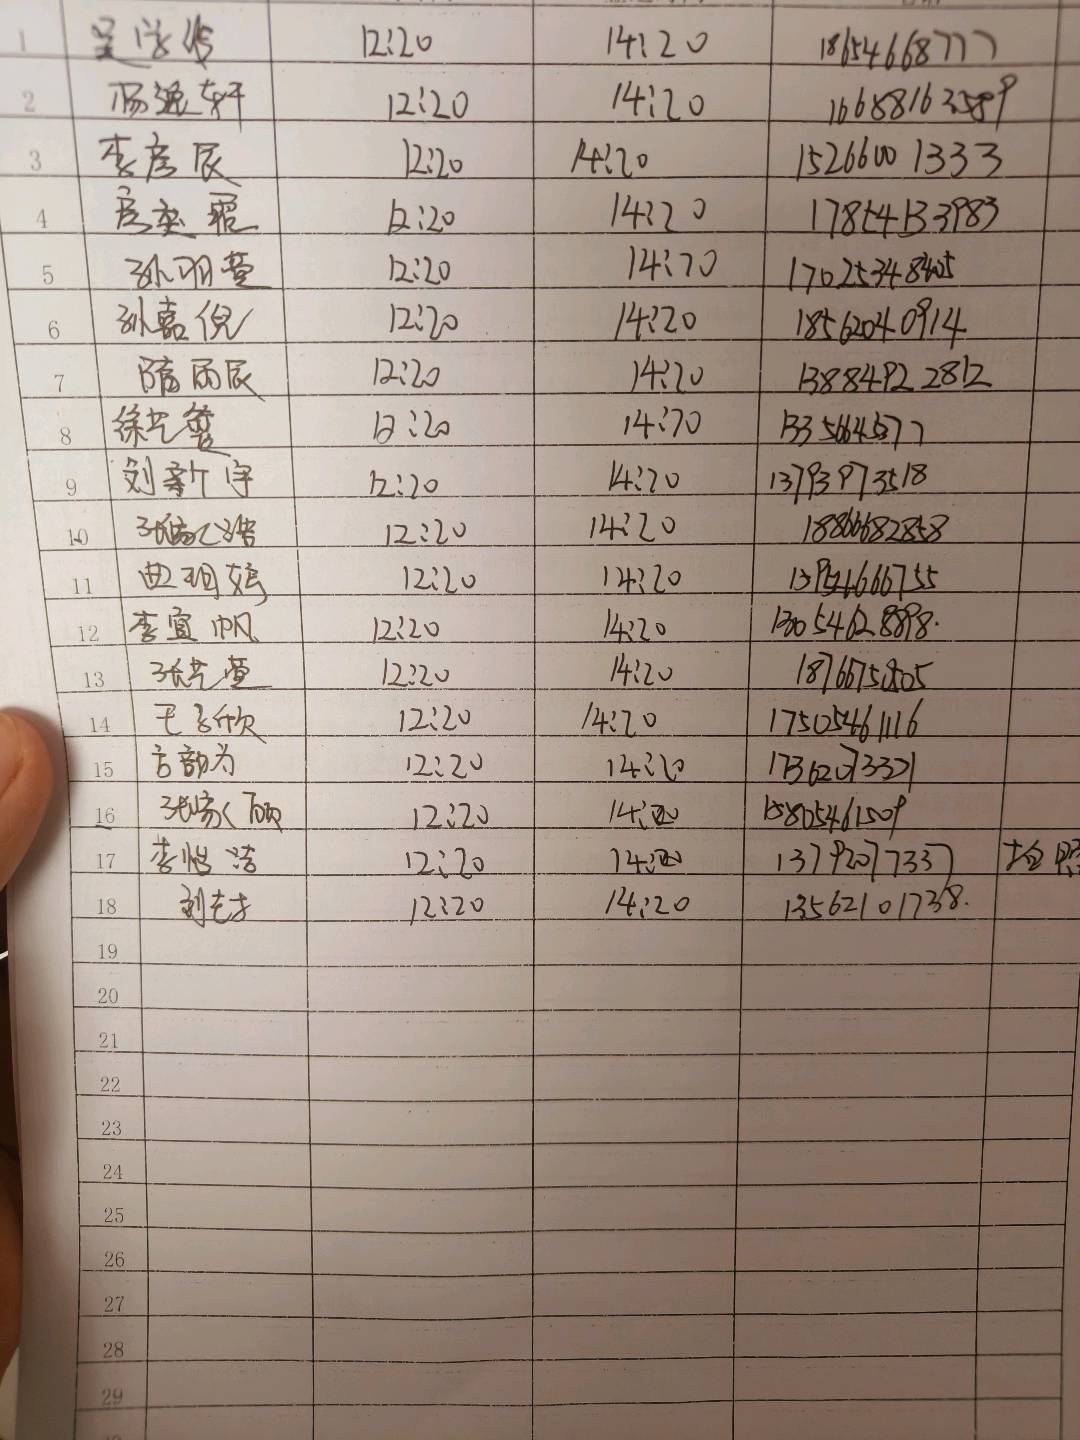 1 12:20 14:20 18654668777
2 杨逸轩 12:20 14:20
3 李彦辰 12:20 14:20 15266001333
4 12:20 14:20 17854133983
5 孙羽萱 12:20 14:20 17025348405
6 孙嘉倪 12:20 14:20 18562040914
7 隋雨辰 12:20 14:20 13884922812
8 徐艺蓉 12:20 14:20
9 刘新宇 12:20 14:20 13793973518
10 12:20 14:20 18866682858
11 曲玥嫣 12:20 14:20 13954666755
12 李宜帆 12:20 14:20 13054628898.
13 张艺萱 12:20 14:20
14 王子欣 12:20 14:20 17505461116
15 方韵为 12:20 14:20
16 12:20 14:20 15805461509
17 李恺洁 12:20 14:20 13792077337
18 12:20 14:20 13562101738.
19
20
21
22
23
24
25
26
27
28
29